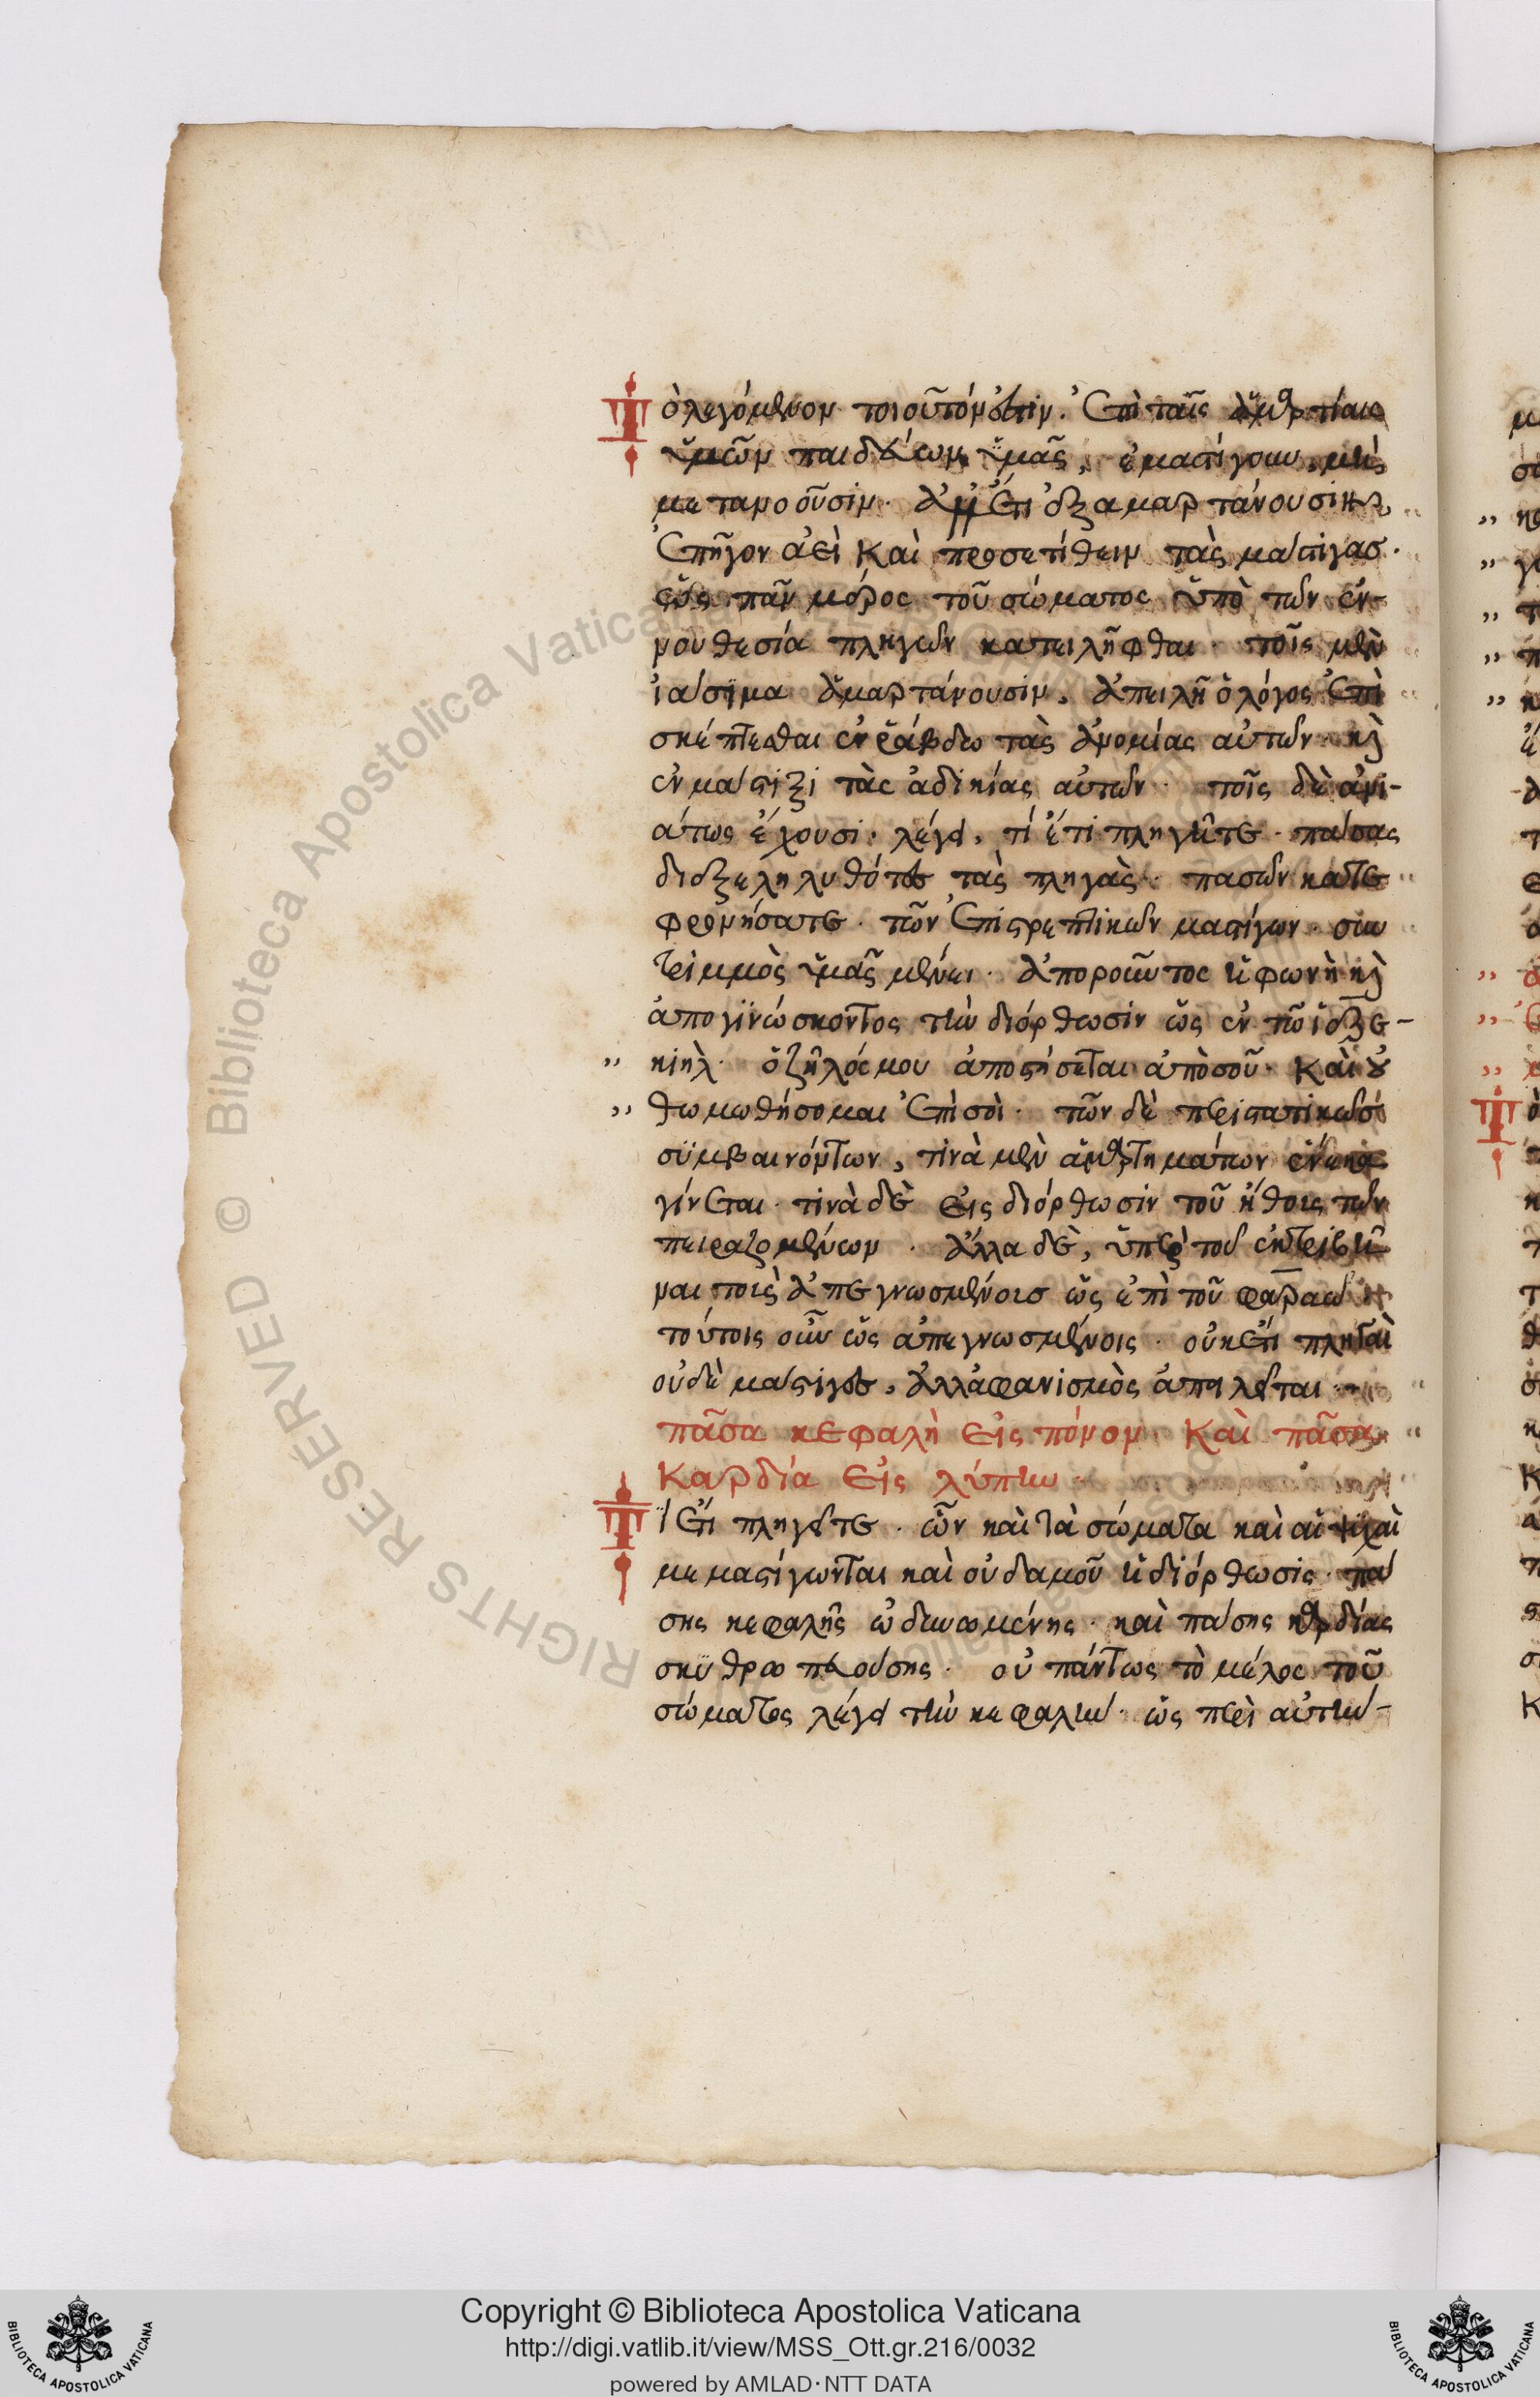 Τὸ λεγόμενον τοιοῦτόν ἐστιν. Ἐπὶ ταῖς ἁμαρτίαις
ὑμῶν παιδεύων ὑμᾶς, ἐμαστίγουν,
μετανοοῦσιν. ἀνθ' ὅτι ἐξαμαρτάνουσιν
ἐπῆγον ἀεὶ καὶ προσετίθειν τὰς μάστιγας.
ὡς πᾶν μέρος τοῦ σώματος ὑπὸ τῶν ἐν
νουθεσία πληγῶν κατειλῆφθαι. τοῖς μὲν
ἰάσιμα ἁμαρτάνουσιν, ἀπειλῆ ὁ λόγος ἐπι
σκέπτεσθαι ἐν ῥάβδω τὰς ἀνομίας αὐτῶν. καὶ
ἐν μάστιξι τὰς ἀδικίας αὐτῶν. τοῖς δὲ ἀνι-
άτως ἔχουσι. λέγει, τί ἔτι πληγῆτε. πάσας
διεξεληλυθότες τὰς πληγὰς. πασῶν κατε
φρονήσατε. τῶν ἐπιστρεπτικῶν μαστίγων. συν
τριμμὸς ὑμᾶς μένει. ἀποροῦντος ἡ φωνὴ καὶ
ἀπογινώσκοντος τὴν διόρθωσιν ὡς ἐν τῶ ἰεζε-
κιήλ. ὁ ζῆλός μου ἀποστήσεται ἀπὸ σοῦ. Καὶ οὐ
θυμωθήσομαι ἐπὶ σοὶ. τῶν δὲ περιστατικῶς
συμβαινόντων, τινὰ μὲν ἁμαρτημάτων ἕνεκα
γίνεται. τινὰ δὲ εἰς διόρθωσιν τοῦ ἤθους τῶν
πειραζομένων. ἄλλα δὲ, ὑπὲρ τοῦ ἐκτριβῆ
ναι τοὶς ἀπεγνωσμένοισ ὡς ἐπὶ τοῦ φαραὼ
τούτοις οὖν ὡς ἀπεγνωσμένοις. οὐκέτι πληγαὶ
οὐδὲ μάστιγες, ἀλλ' ἀφανισμὸς ἀπειλεῖται
πᾶσα κεφαλὴ εἰς πόνον. Καὶ πᾶσα
καρδία εἰς λύπην
Τί ἔτι πληγεῖτε. ὧν καὶ τὰ σώματα καὶ αἱ ψυχαὶ
μεμαστίγωνται καὶ οὐδαμοῦ ἡ διόρθωσις. πά
σης κεφαλῆς ὠδυνωμένης. καὶ πάσης καρδίας
σκυθρωπαζούσης. οὐ πάντως τὸ μέλος τοῦ
σώματος λέγει τὴν κεφαλὴν. ὡς περὶ αὐτὴν-
Copyright © Biblioteca Apostolica Vaticana
http://digi.vatlib.it/view/MSS_Ott.gr.216/0032
powered by AMLAD·NTT DATA